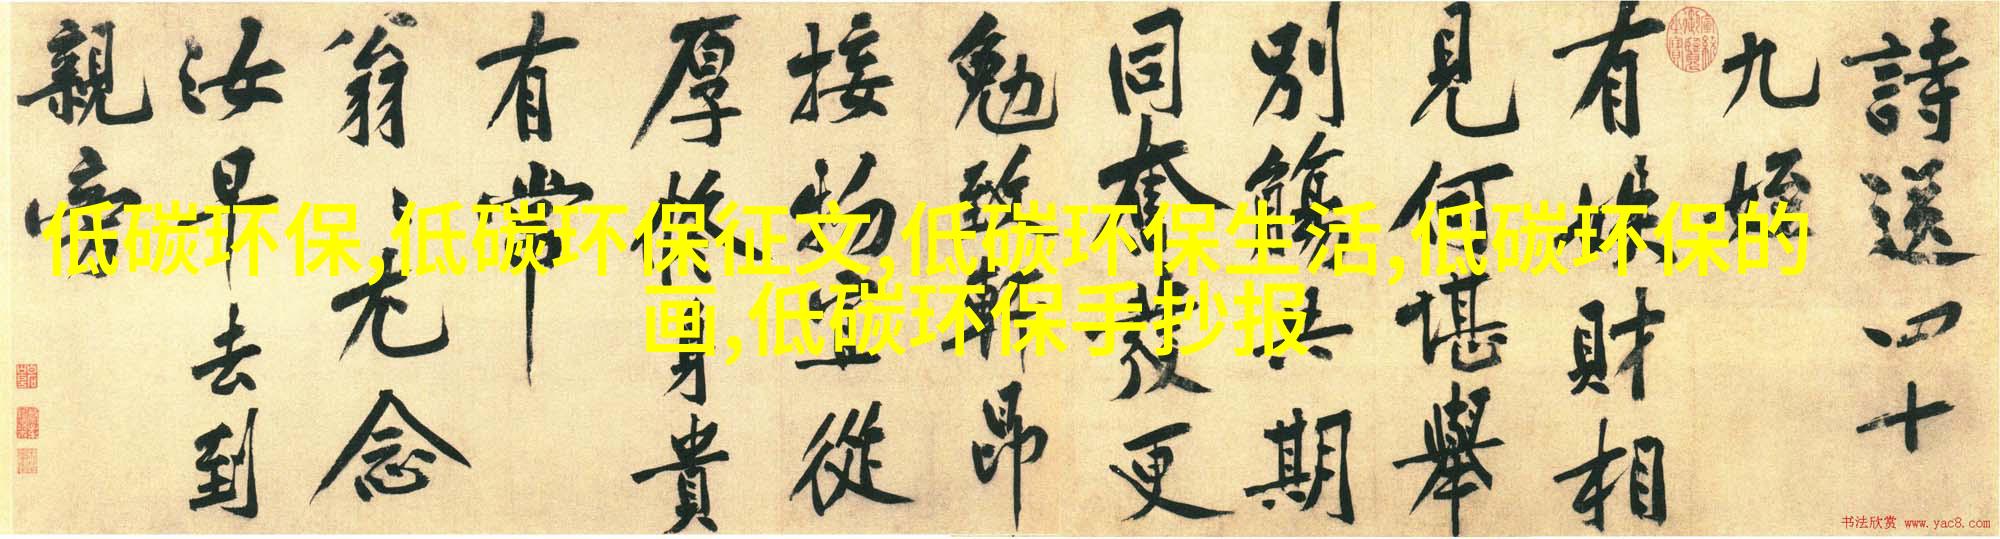 詩送四十
九姪
有財相
見何堪舉
別觴共期
同奮發更
勉致軒昂
接物宜從
厚修身貴
有常
翁〻尤念
汝早去到
親旁
低碳环保,低碳环保征文,低碳环保生活,低碳环保的
画,低碳环保手抄报
书法欣赏 www.yac8.com